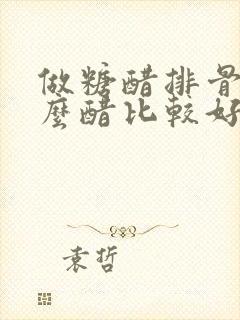 做糖醋排骨
麼醋比較好
袁哲